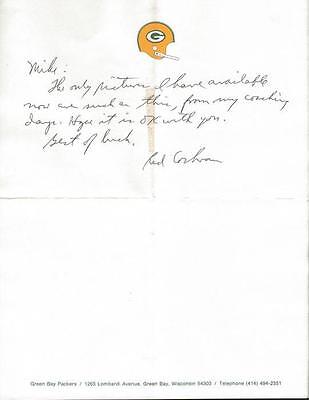 G
Mike:
The only pictures I have available
now are such as this, from my coaching
days. Hope it is OK with you.
Best of luck.
Red Cochran
Green Bay Packers / 1265 Lombardi Avenue, Green Bay, Wisconsin 54303 / Telephone (414) 494-2351